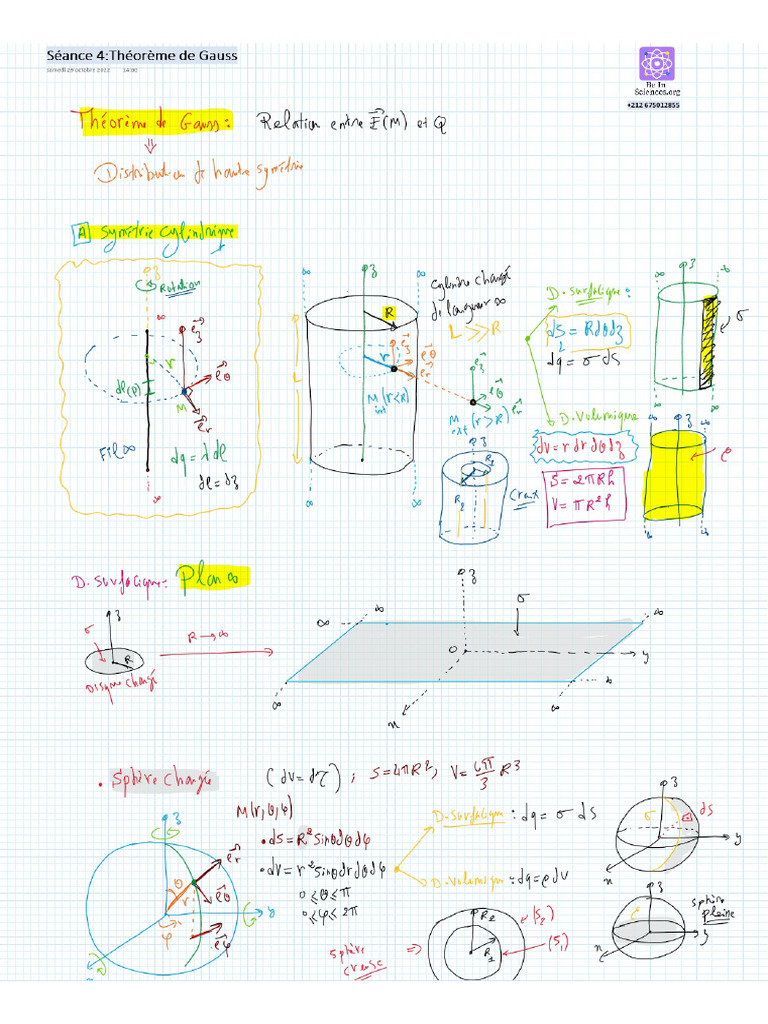 Séance 4:Théorème de Gauss
samedi 29 octobre 2022 14:00
Be In
Sciences.org
+212 675012855
Théorème de Gauss: Relation entre E⃗(M) et Q
⇓
Distribution de haute symétrie
A Symétrie cylindrique
z
Rotation
∞
e⃗z
r
dl(P)
e⃗θ
M
e⃗r
Fil ∞
dq = λ dl
dl = dz
∞
∞ z ∞
R
L
r
e⃗z
e⃗θ
e⃗r
M(r<R)
int
∞ ∞
Cylindre chargé
de longueur ∞
L >>> R
e⃗z
e⃗θ
e⃗r
M(r>R)
ext
z
R1
R2
Creux
D. Surfacique:
dS = Rdθdz
dq = σ ds
D. Volumique
dv = r dr dθ dz
S = 2πRh
V = πR²h
∞ z ∞
σ
∞ ∞
∞ z ∞
ρ
∞ ∞
D. surfacique: Plan ∞
z
σ
R
Disque chargé
R → ∞
z
σ
∞ ∞ ∞
O y
∞ ∞
x
• Sphère chargée (dv = dτ) ; S = 4πR², V = 4π/3 R³
M(r,θ,φ)
• ds = R² sinθdθdφ
• dv = r² sinθdrdθdφ
0 ≤ θ ≤ π
0 ≤ φ ≤ 2π
z
e⃗r
θ
r
e⃗θ
y
φ
e⃗φ
D. Surfacique : dq = σ ds
D. Volumique : dq = ρ dv
z
σ
ds
y
x
z
ρ
y
x
sphère
pleine
sphère
creuse
⇒
R2
R1
(S2)
(S1)